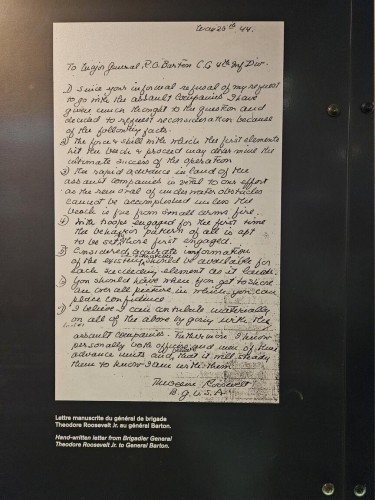 May 26th 44.
To Major General R.O. Barton C.G 4th Inf Div.
1) Since your informal refusal of my request
to go with the assault companies I have
given much thought to the question and
decided to request reconsideration because
of the following facts.
2) The force & skill with which the first elements
hit the beach & proceed may determine the
ultimate success of the operation
3) The rapid advance in land of the
assault companies is vital to our effort
as the removal of underwater obstacles
cannot be accomplished unless the
beach is free from small arms fire.
4) With troops engaged for the first time
the behavior pattern of all is apt
to be set by those first engaged.
5) Considered accurate information
of the existing situation should be available for
each succeeding element as it lands.
6) You should have when you get to shore
an over all picture in which you can
place confidence
7) I believe I can contribute materially
on all of the above by going with the
assault companies. Furthermore I know
personally both officers and men of these
advance units and believe that it will steady
them to know I am with them
Theodore Roosevelt
B.G. U.S.A
Lettre manuscrite du général de brigade
Theodore Roosevelt Jr. au général Barton.
Hand-written letter from Brigadier General
Theodore Roosevelt Jr. to General Barton.